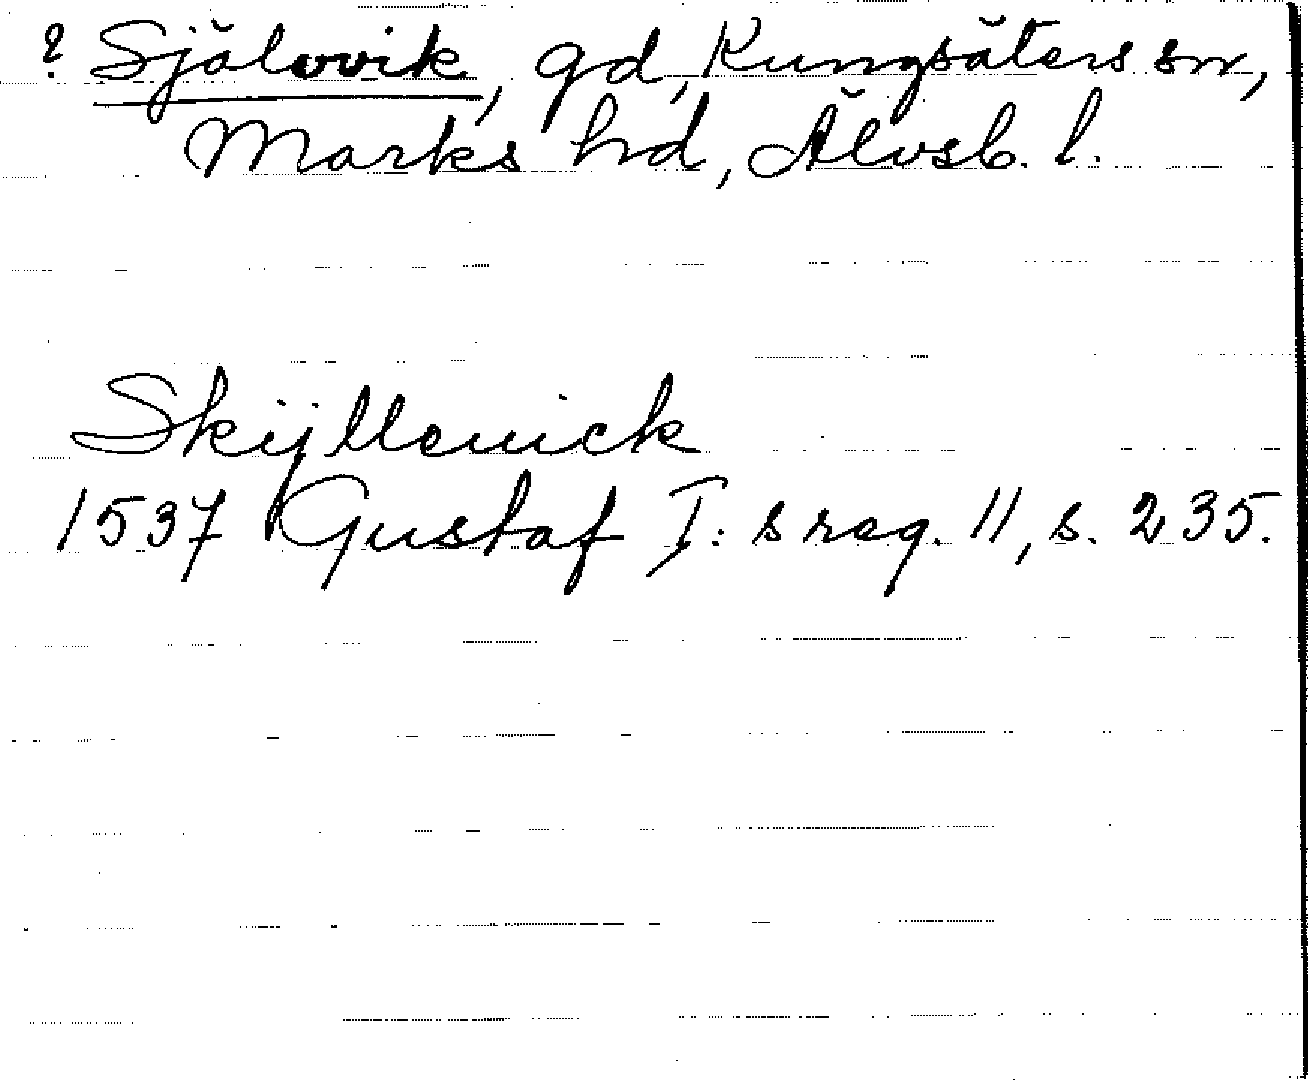 ? Själovik, gd, Kungsäters sn,
Marks hd, Älvsb. l.
Skÿllewick
1537 Gustaf I: s reg. 11, s. 235.